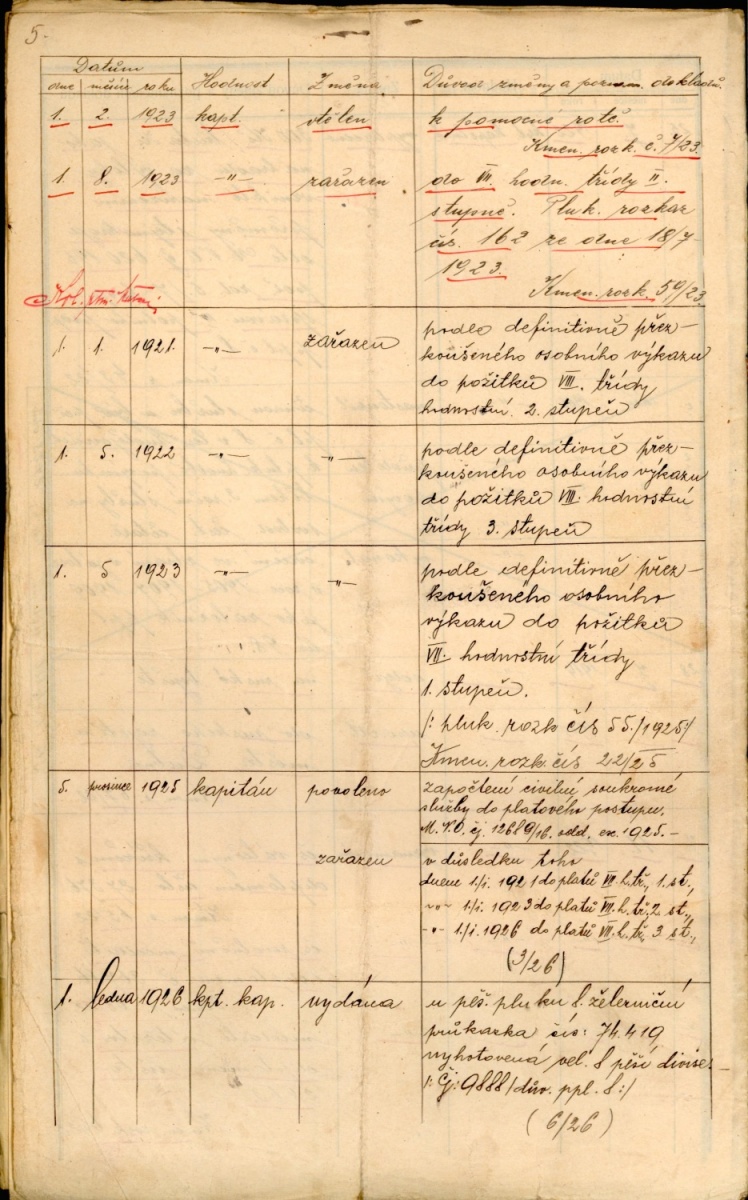 5.
Datum
dne měsíc roku Hodnost Změna Důvod změny a poznam. dokladů.
1. 2. 1923 kapt. vtělen k pomocné rotě.
Kmen. rozk. č. 7/23.
1. 8. 1923 -"- zařazen do VII. hodn. třídy II.
stupně. Pluk. rozkaz
čís. 162 ze dne 18/7
1923.
Kmen. rozk. 59/23.
1. 1. 1921. -"- zařazen podle definitivně přez-
koušeného osobního výkazu
do požitků VIII. třídy
hodnostní. 2. stupeň
1. 5. 1922 -"- -"- podle definitivně přez-
koušeného osobního výkazu
do požitků VIII. hodnostní
třídy 3. stupeň
1. 5 1923 -"- -"- podle definitivně přez-
koušeného osobního
výkazu do požitků
VII. hodnostní třídy
1. stupeň.
/: pluk. rozk čís 55./1925:/
Kmen. rozk. čís 22/25
5. prosince 1925 kapitán povoleno započtení civilní soukromé
služby do platového postupu.
M.N.O. čj. 12689/16. odd. ex. 1925.-
zařazen v důsledku toho
dnem 1./i. 1921 do platů VII. h. tř., 1. st.,
-"- 1./i. 1923 do platů VII. h. tř. 2 st.,
-"- 1./i. 1926 do platů VII. h. tř. 3 st.,
(3/26)
1. ledna 1926 kpt. kap. vydána u pěš. pluku 8. železniční
průkazka čís: 74.419
vyhotovená vel. 8 pěší divise.
/: čj: 9888/dův. ppl. 8:/
(6/26)